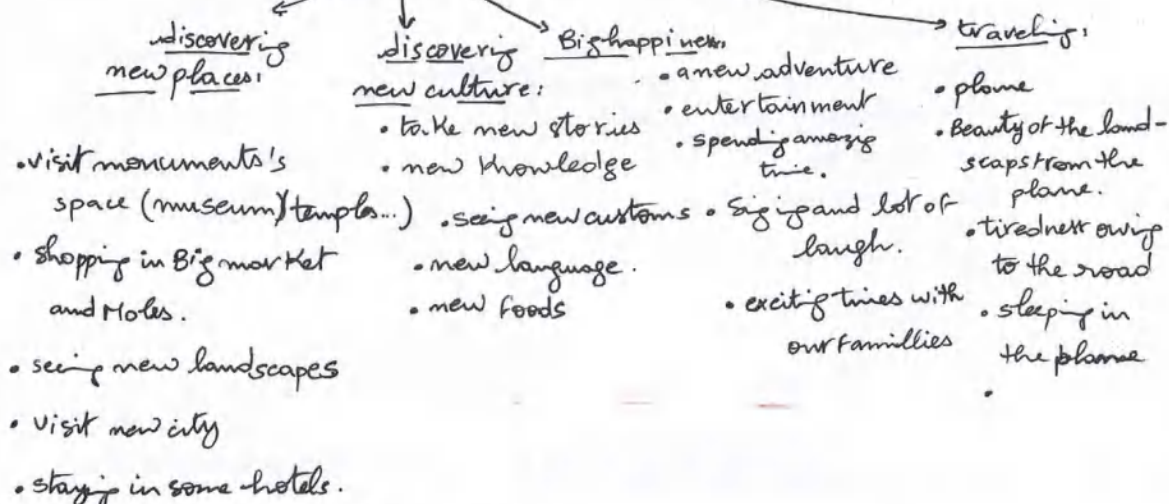 discovering
new places:
• visit monuments's
space (museum)(temples...)
• shopping in Big market
and Moles.
• seeing new landscapes
• visit new city
• staying in some hotels.
discoverig
new culture:
• take new stories
• new Knowledge
• seeing new customs
• new language.
• new foods
Big happiness:
• a new adventure
• entertainment
• spending amazig
time.
• Sigig and lot of
laugh.
• excitig times with
our famillies
traveling:
• plame
• Beauty of the land-
scaps from the
plame.
• tiredness owing
to the road
• sleeping in
the plamne
•